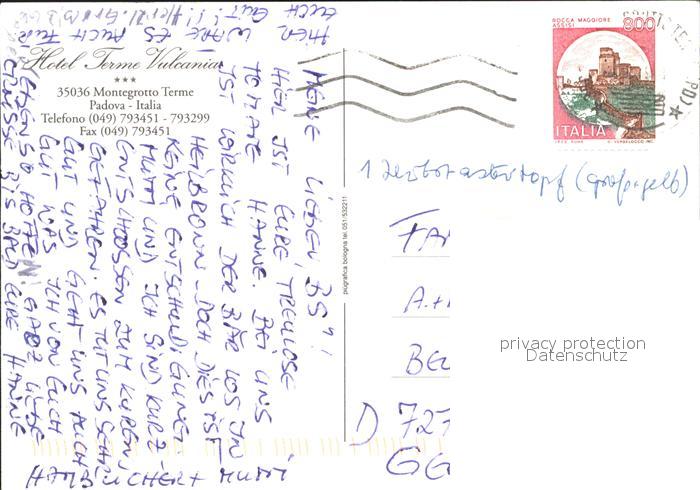 Hotel Terme Vulcania
★★★
35036 Montegrotto Terme
Padova - Italia
Telefono (049) 793451 - 793299
Fax (049) 793451
MEINE LIEBEN, BS"!
HIER IST EURE TREULOSE
TOMATE HANNE. BEI UNS
IST WIRKLICH DER BÄR LOS IN
HEILBRONN. DOCH DIES IST
KEINE ENTSCHULDIGUNG!
MUTTI UND ICH SIND KURZ-
ENTSCHLOSSEN ZUM KUREN
GEFAHREN. ES TUT UNS SEHR
GUT UND GEHT UNS AUCH
GUT WAS ICH VON EUCH
EBENSO HOFFE. GANZ LIEBE
GRÜSSE BIS BALD EURE HANNE
+ MUTTI
HIER WÄRE ES AUCH FÜR
EUCH GUT!!!
piugrafica bologna tel. 051/532211
ROCCA MAGGIORE
ASSISI
800
ITALIA
1 Herbstastertopf (groß + gelb)
FA
A.
BE
D 727
GG
privacy protection
Datenschutz